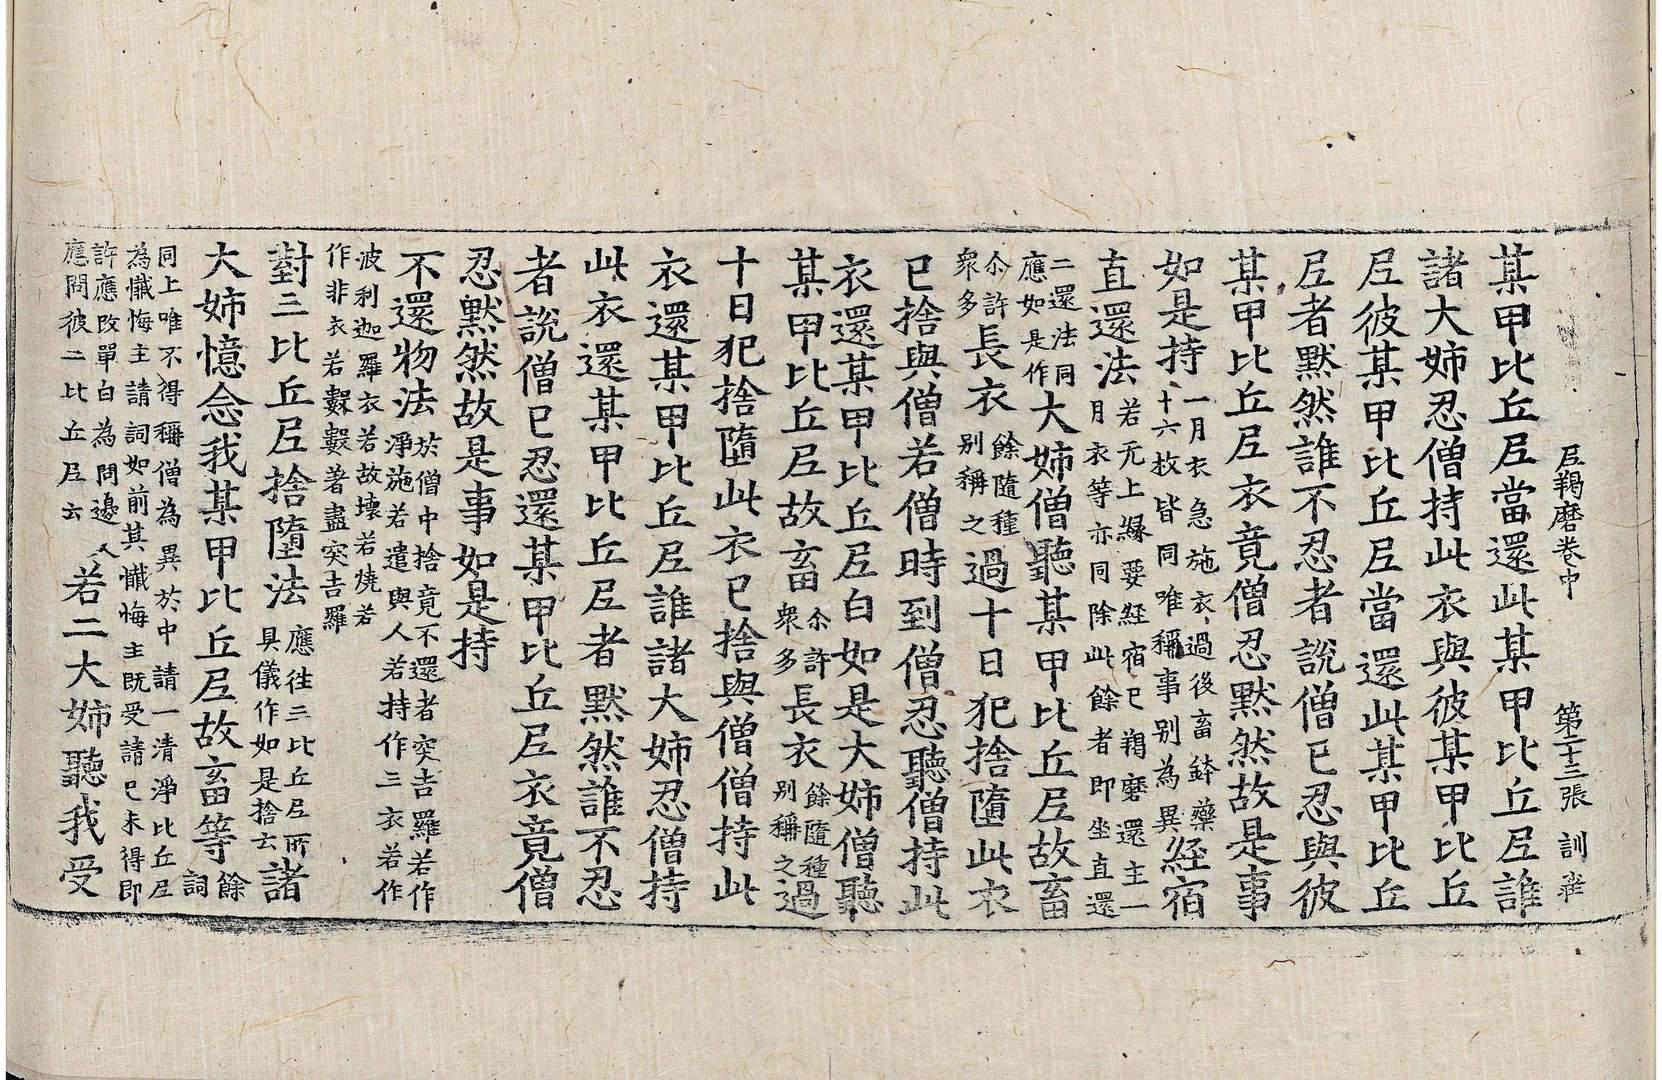 尼羯磨卷中 第二十三張 訓
某甲比丘尼當還此某甲比丘尼誰
諸大姉忍僧持此衣與彼某甲比丘
尼彼某甲比丘尼當還此某甲比丘
尼者默然誰不忍者說僧已忍與彼
某甲比丘尼衣竟僧忍默然故是事
如是持
一月衣急施衣過後畜鉢藥
十六枚皆同唯稱事別為異
經宿
直還法
若无上緣要経宿已羯磨還主一
月衣等亦同除此餘者即坐直還
二還法同
應如是作
大姉僧聽某甲比丘尼故畜
尒許
衆多
長衣
餘隨種
別稱之
過十日犯捨墮此衣
已捨與僧若僧時到僧忍聽僧持此
衣還某甲比丘尼白如是大姉僧聽
某甲比丘尼故畜
尒許
衆多
長衣
餘隨種
別稱之
過
十日犯捨墮此衣已捨與僧僧持此
衣還某甲比丘尼誰諸大姉忍僧持
此衣還某甲比丘尼者默然誰不忍
者說僧已忍還某甲比丘尼衣竟僧
忍默然故是事如是持
不還物法
於僧中捨竟不還者突吉羅若作
淨施若遣與人若持作三衣若作
波利迦羅衣若故壞若燒若
作非衣若數數著盡突吉羅
對三比丘尼捨墮法
應往三比丘尼所
具儀作如是捨云
諸
大姉憶念我某甲比丘尼故畜等
餘
詞
同上唯不得稱僧為異於中請一清淨比丘尼
為懺悔主請詞如前其懺悔主既受請已未得即
許應改單白為問邊人
應問彼二比丘尼云
若二大姉聽我受